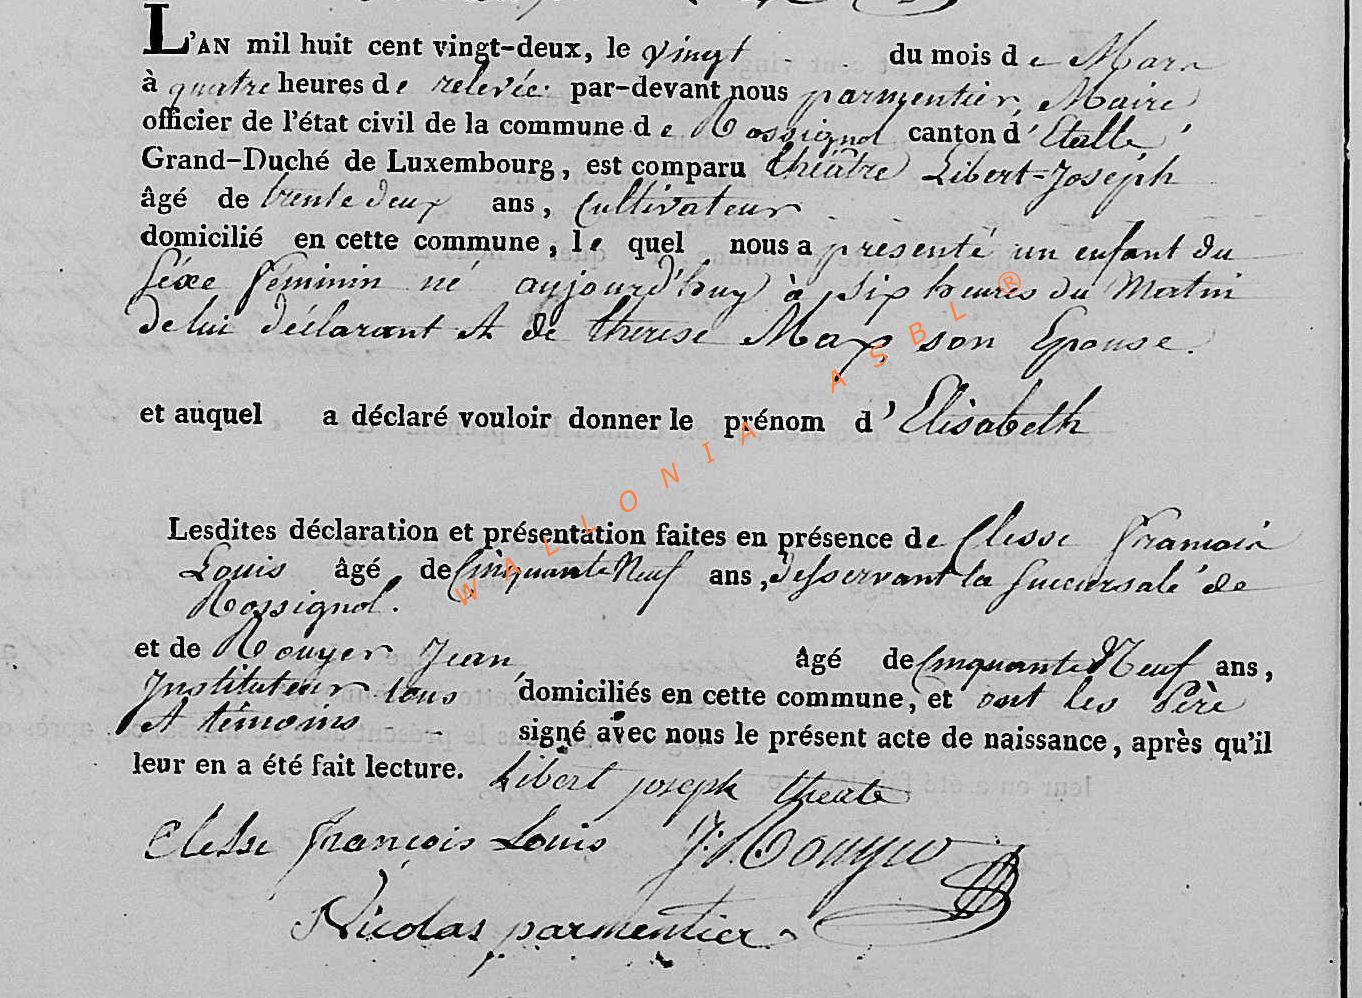 L'AN mil huit cent vingt-deux, le vingt du mois de Mars
à quatre heures de relevée par-devant nous parmentier, Maire
officier de l'état civil de la commune de Rossignol canton d'Etalle
Grand-Duché de Luxembourg, est comparu théâtre Libert=Joseph
âgé de trente deux ans, Cultivateur
domicilié en cette commune, le quel nous a presenté un enfant du
séxe féminin né aujourd'huy à six heures du Matin
de lui déclarant et de therese Max son Epouse.
et auquel a déclaré vouloir donner le prénom d'Elisabeth
Lesdites déclaration et présentation faites en présence de Clesse francois
Louis âgé de Cinquante Neuf ans, desservant la succursale de
Rossignol.
et de Rouyer Jean, âgé de Cinquante Neuf ans,
Instituteur tous domiciliés en cette commune, et ont les Père
et témoins signé avec nous le présent acte de naissance, après qu'il
leur en a été fait lecture. Libert joseph theate
Clesse françois Louis J. Rouyer
Nicolas parmentier
WALLONIA ASBL ®